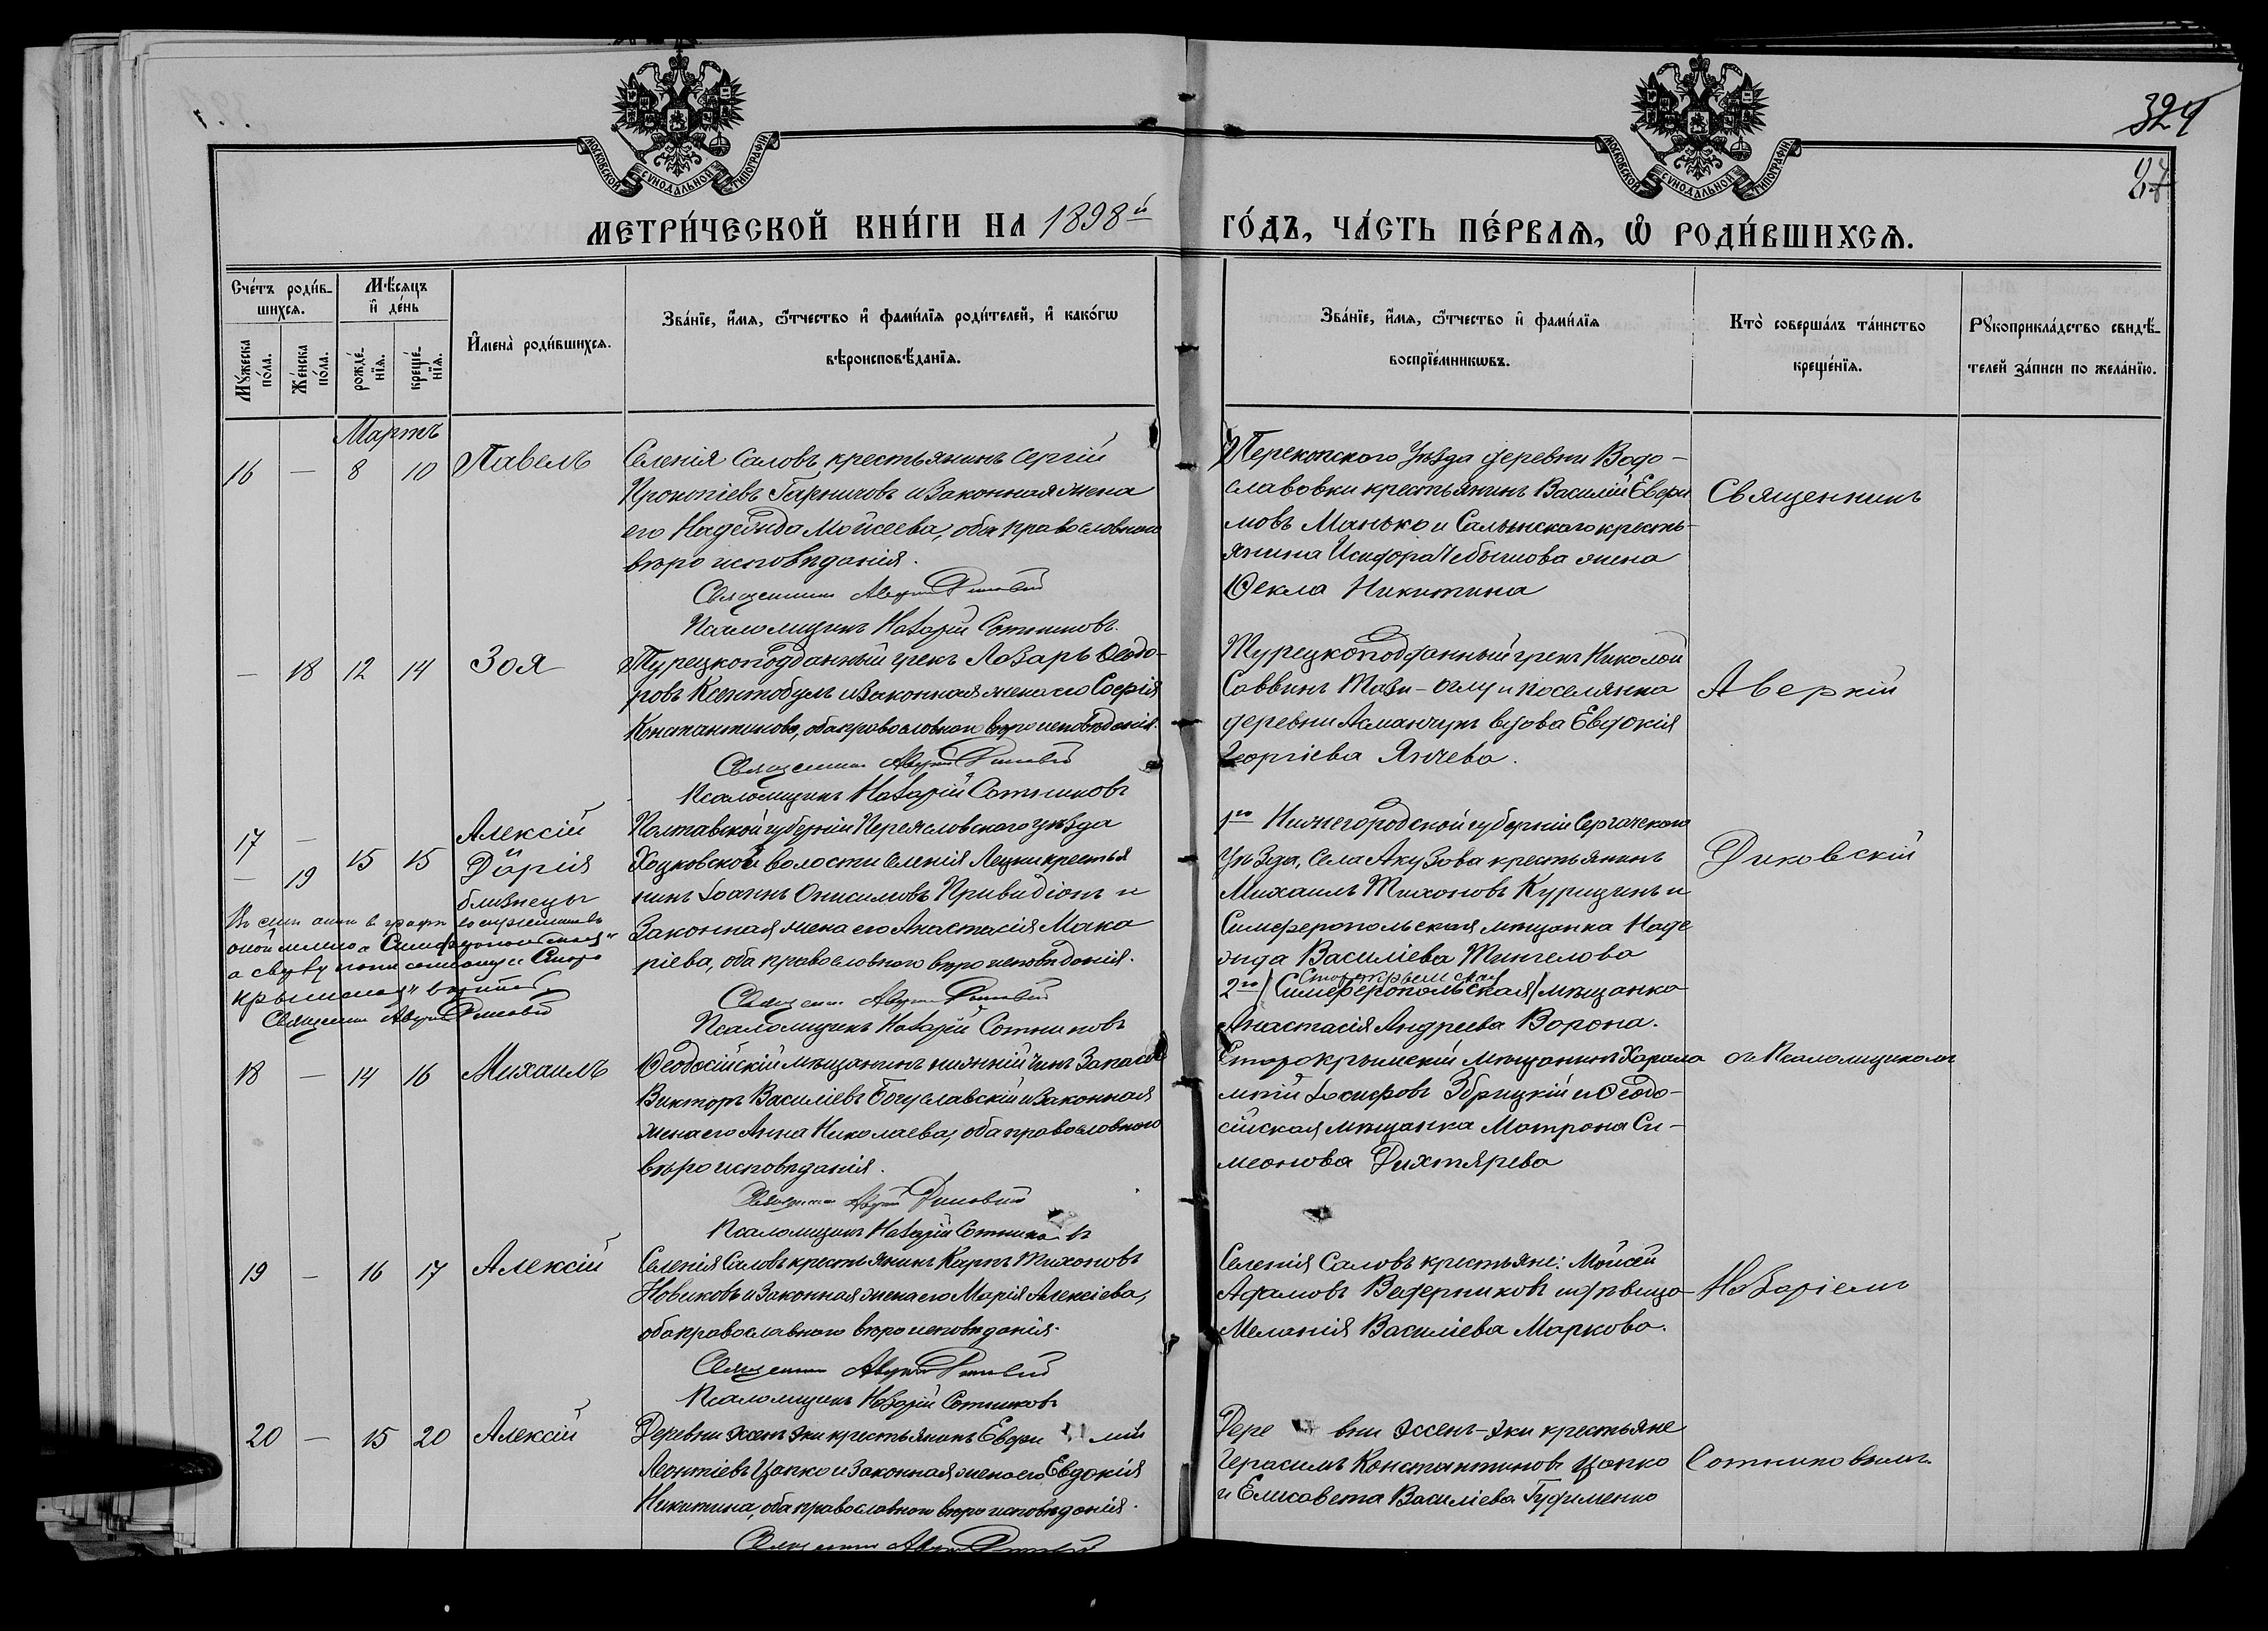 324
27
МОСКОВСКОЙ СѴНОДАЛЬНОЙ ТИПОГРАФІИ
МОСКОВСКОЙ СѴНОДАЛЬНОЙ ТИПОГРАФІИ
МЕТРИ́ЧЕСКОЙ КНИ́ГИ НА 1898й
ГО́ДЪ, ЧА́СТЬ ПЕ́РВАѦ, Ѡ РОДИ́ВШИХСѦ.
Сче́тъ роди́вшихсѧ.
Мꙋ́жеска по́ла.
Же́нска по́ла.
Мѣ́сѧцъ и҆ де́нь
рожде́нїѧ.
креще́нїѧ.
И҆мена̀ роди́вшихсѧ.
Зва́нїе, и҆́мѧ, ѻ҆́тчество и҆ фами́лїѧ роди́телей, и҆ како́гѡ
вѣроисповѣ́данїѧ.
Зва́нїе, и҆́мѧ, ѻ҆́тчество и҆ фами́лїѧ
воспрїе́мникѡвъ.
Кто̀ соверша́лъ та́инство
креще́нїѧ.
Рꙋкоприкла́дство свидѣ́-
телей за́писи по жела́нїю.
Мартъ
16 — 8 10 Павелъ
Селенія Саловъ крестьянинъ Сергій
Прокопіевъ и законная жена
его Надежда Моисеева, оба православнаго
вѣроисповѣданія.
Священникъ Аверкій Диковскій
Псаломщикъ Назарій Сотниковъ.
Перекопского Уѣзда деревни Водо-
славовки крестьянинъ Василій Евфи
мовъ Манько и Салынскаго кресть-
янина Исидора Чебышова жена
Ѳекла Никитина
Священникъ
— 18 12 14 Зоя
Турецкоподданный грекъ Лазарь Ѳеодо-
ровъ и законная жена его Софія
Константинова, оба православнаго вѣроисповѣданія.
Священникъ Аверкій Диковскій
Псаломщикъ Назарій Сотниковъ
Турецкоподданный грекъ Николай
Саввинъ Тази-оглу и поселянка
деревни Асманчукъ вдова Евдокія
Георгіева Янчева.
Аверкій
17 —
— 19 15 15
Алексій
Дарія
близнецы
Полтавской губерніи Переясловского уѣзда
Хоцковской волости селенія Лецки крестья
нинъ Іоаннъ Онисимовъ и
законная жена его Анастасія Мака
ріева, оба православнаго вѣроисповѣданія.
Священникъ Аверкій Диковскій
Псаломщикъ Назарій Сотниковъ
1го Нижегородской губерніи Сергачского
уѣзда, села Акузова крестьянинъ
Михаилъ Тихоновъ Курицинъ и
Симферопольская мѣщанка Наде
жда Василіева
Старокрымская
2го /Симферопольская/ мѣщанка
Анастасія Андреева Ворона.
Диковскій
Въ семъ актѣ в графѣ
Священникъ Аверкій Диковскій
18 — 14 16 Михаилъ
Ѳеодосійскій мѣщанинъ нижній чинъ запаса
Викторъ Василіевъ Богуславскій и законная
жена его Анна Николаева, оба православнаго
вѣроисповѣданія.
Священникъ Аверкій Диковскій
Псаломщикъ Назарій Сотниковъ
Старокрымскій мѣщанинъ Харала
мпій Іосифовъ Збрицкій и Ѳеодо-
сійская мѣщанка Матрона Си-
меонова Дихтярева
съ Псаломщикомъ
19 — 16 17 Алексій
Селенія Саловъ крестьянинъ Карпъ Тихоновъ
Новиковъ и законная жена его Марія Алексіева,
оба православнаго вѣроисповѣданія.
Священникъ Аверкій Диковскій
Псаломщикъ Назарій Сотниковъ
Селенія Саловъ крестьяне: Моисей
Адамовъ Ведерниковъ и дѣвица
Меланія Василіева Маркова.
Назаріемъ
20 — 15 20 Алексій
Деревни Эссенъ-эки крестьянинъ Евфимій
Леонтіевъ Цапко и законная жена его Евдокія
Никитина, оба православнаго вѣроисповѣданія.
Священникъ Аверкій Диковскій
Деревни Эссенъ-эки крестьяне
Герасимъ Константиновъ Цапко
и Елисавета Василіева Гудименко
Сотниковымъ.